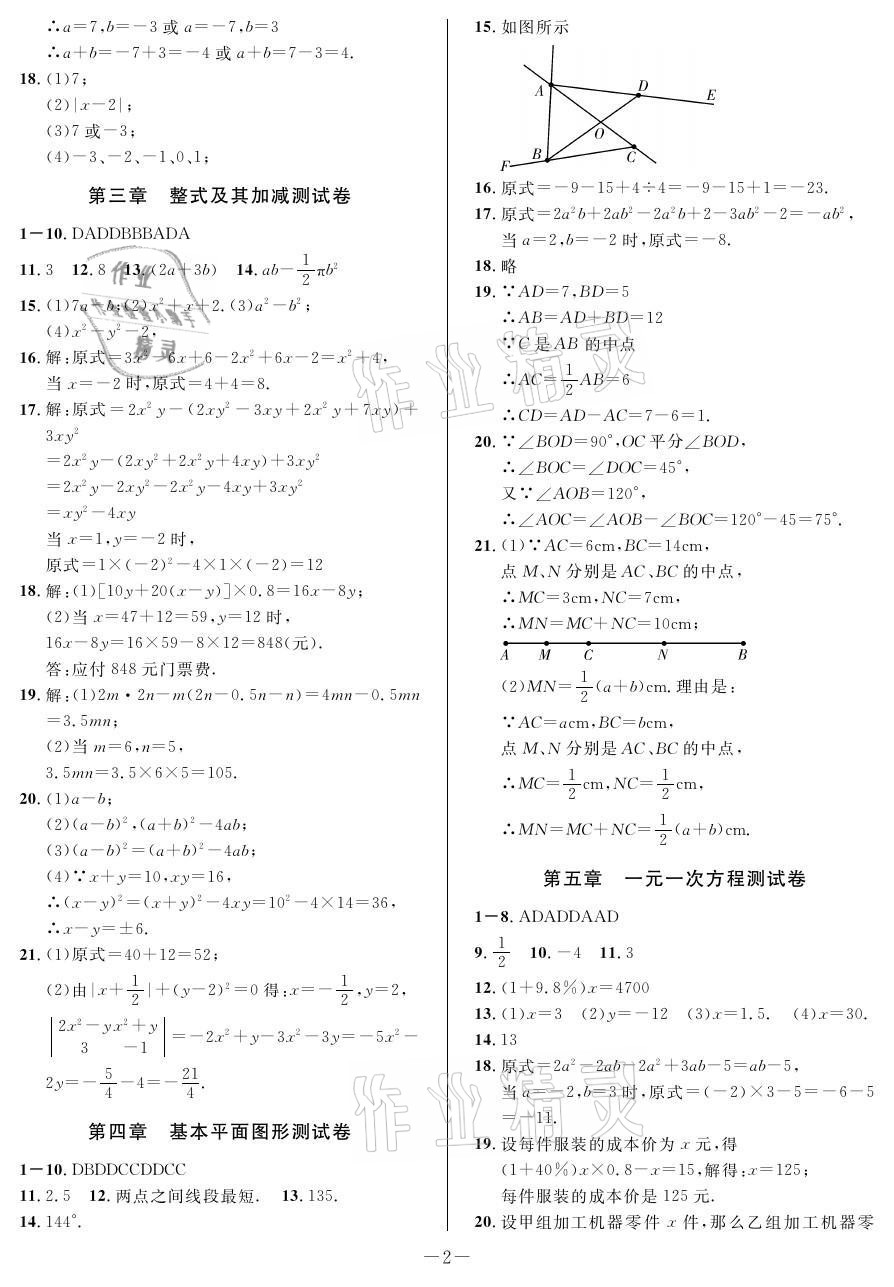 ∴a=7,b=-3 或 a=-7,b=3
∴a+b=-7+3=-4 或 a+b=7-3=4.
18. (1)7;
(2)|x-2|;
(3)7 或-3;
(4)-3、-2、-1、0、1;
第三章 整式及其加减测试卷
1-10. DADDBBBADA
11. 3 12. 8 13. (2a+3b) 14. ab-1/2πb²
15. (1)7a-b;(2)x²+x+2.(3)a²-b²;
(4)x²-y²-2,
16. 解:原式=3x²-6x+6-2x²+6x-2=x²+4,
当 x=-2 时,原式=4+4=8.
17. 解:原式=2x²y-(2xy²-3xy+2x²y+7xy)+
3xy²
=2x²y-(2xy²+2x²y+4xy)+3xy²
=2x²y-2xy²-2x²y-4xy+3xy²
=xy²-4xy
当 x=1,y=-2 时,
原式=1×(-2)²-4×1×(-2)=12
18. 解:(1)[10y+20(x-y)]×0.8=16x-8y;
(2)当 x=47+12=59,y=12 时,
16x-8y=16×59-8×12=848(元).
答:应付 848 元门票费.
19. 解:(1)2m·2n-m(2n-0.5n-n)=4mn-0.5mn
=3.5mn;
(2)当 m=6,n=5,
3.5mn=3.5×6×5=105.
20. (1)a-b;
(2)(a-b)²,(a+b)²-4ab;
(3)(a-b)²=(a+b)²-4ab;
(4)∵x+y=10,xy=16,
∴(x-y)²=(x+y)²-4xy=10²-4×14=36,
∴x-y=±6.
21. (1)原式=40+12=52;
(2)由|x+1/2|+(y-2)²=0 得:x=-1/2,y=2,
|2x²-y x²+y
3 -1|=-2x²+y-3x²-3y=-5x²-
2y=-5/4-4=-21/4.
第四章 基本平面图形测试卷
1-10. DBDDCCDDCC
11. 2.5 12. 两点之间线段最短. 13. 135.
14. 144°.
15. 如图所示
A D E
O
B C
F
16. 原式=-9-15+4÷4=-9-15+1=-23.
17. 原式=2a²b+2ab²-2a²b+2-3ab²-2=-ab²,
当 a=2,b=-2 时,原式=-8.
18. 略
19. ∵AD=7,BD=5
∴AB=AD+BD=12
∵C 是 AB 的中点
∴AC=1/2AB=6
∴CD=AD-AC=7-6=1.
20. ∵∠BOD=90°,OC 平分∠BOD,
∴∠BOC=∠DOC=45°,
又∵∠AOB=120°,
∴∠AOC=∠AOB-∠BOC=120°-45=75°.
21. (1)∵AC=6cm,BC=14cm,
点 M、N 分别是 AC、BC 的中点,
∴MC=3cm,NC=7cm,
∴MN=MC+NC=10cm;
A M C N B
(2)MN=1/2(a+b)cm.理由是:
∵AC=acm,BC=bcm,
点 M、N 分别是 AC、BC 的中点,
∴MC=1/2cm,NC=1/2cm,
∴MN=MC+NC=1/2(a+b)cm.
第五章 一元一次方程测试卷
1-8. ADADDAAD
9. 1/2 10. -4 11. 3
12. (1+9.8%)x=4700
13. (1)x=3 (2)y=-12 (3)x=1.5. (4)x=30.
14. 13
18. 原式=2a²-2ab-2a²+3ab-5=ab-5,
当 a=-2,b=3 时,原式=(-2)×3-5=-6-5
=-11.
19. 设每件服装的成本价为 x 元,得
(1+40%)x×0.8-x=15,解得:x=125;
每件服装的成本价是 125 元.
20. 设甲组加工机器零件 x 件,那么乙组加工机器零
-2-
作业精灵
作业精灵
作业
精灵